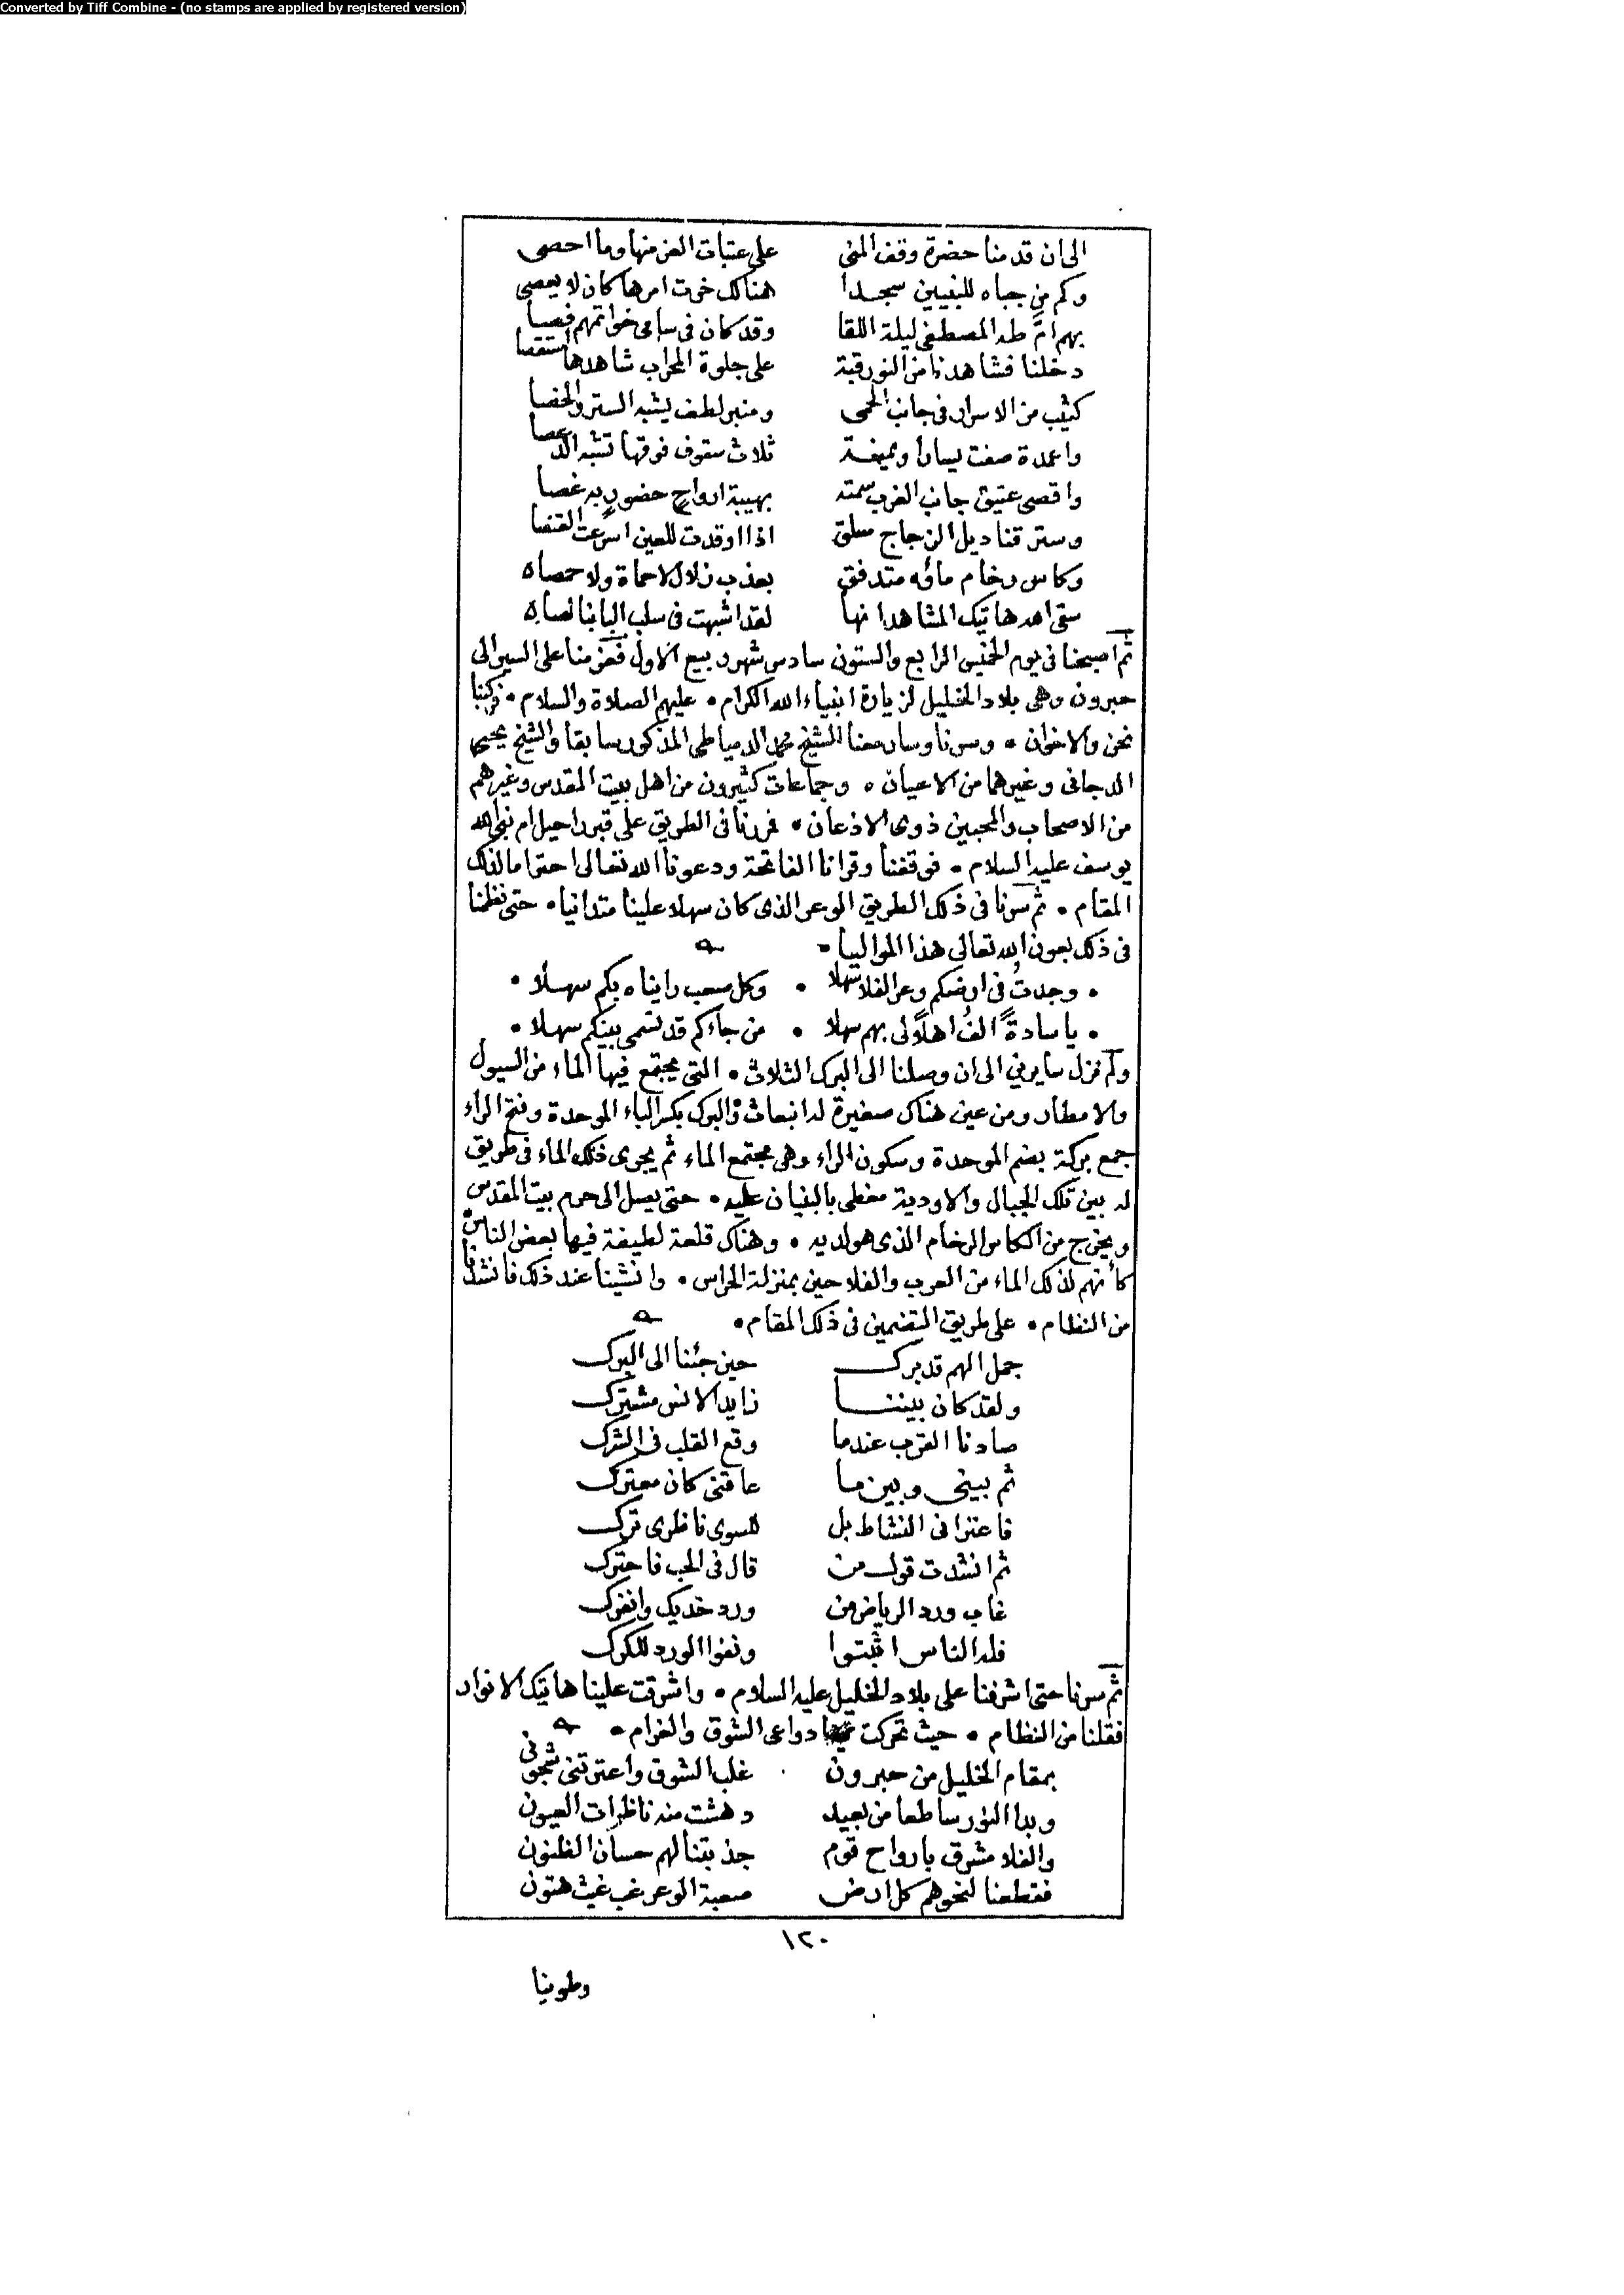 Converted by Tiff Combine - (no stamps are applied by registered version)
الى ان قدمنا حضرة وقف المنى على عتبات العز منها وما احصى
وكم من جباه للنبيين سجدا هناك خرت امرها كان لا يعصى
بهم امّ طه المصطفى ليلة اللقا وقد كان فى سامى خواتمهم فصا
دخلنا فشاهدنا من النور قبة على جلوة المحراب شاهدها استقصا
كثيب من الاسرار فى جانب الحمى ومنبر لطف يشبه الستر والخصا
واعمدة صفت يسارا ويمنة ثلاث سقوف فوقها تشبه الدعصا
واقصى عتيق جانب الغرب سمته بهيبة ارواحٍ حضورٍ به غصا
وستر قناديل الزجاج معلق اذا اوقدت للعين اسرعت القنصا
وكاس رخام مائه متدفق بعذب زلال لا حماة ولا حصاه
سقى الله هاتيك المشاهد انها لقد اشبهت فى سلب البابنا لصاه
ثم اصبحنا فى يوم الخميس الرابع والستون سادس شهر ربيع الاول فعزمنا على السير الى
حبرون وهى بلاد الخليل لزيارة انبياء الله الكرام • عليهم الصلاة والسلام • فركبنا
نحن والاخوان • وسرنا وسار معنا الشيخ محمد الدمياطى المذكور سابقا والشيخ يحيى
الدجانى وغيرهما من الاعيان • وجماعات كثيرون من اهل بيت المقدس وغيرهم
من الاصحاب والمحبين ذوى الاذعان • فمررنا فى الطريق على قبر راحيل ام نبى الله
يوسف عليه السلام • فوقفنا وقرانا الفاتحة ودعونا الله تعالى احتراما لذلك
المقام • ثم سرنا فى ذلك الطريق الوعر الذى كان سهلا علينا متدانيا • حتى نظمنا
فى ذلك بعون الله تعالى هذا المواليا •
• وجدتُ فى ارضكم وعر الفلا سهلا • وكل صعب رايناه بكم سهلا •
• يا سادةً الفُ اهلاً لى بهم سهلا • من جاءكم قد تسمى بينكم سهلا •
ولم نزل سايرين الى ان وصلنا الى البرك الثلاث • التى يجتمع فيها الماء من السيول
والامطار ومن عين هناك صغيرة لها نبعات والبرك بكسر الباء الموحدة وفتح الراء
جمع بركة بضم الموحدة وسكون الراء وهى مجتمع الماء ثم يجرى ذلك الماء فى طريق
له بين تلك الجبال والاودية مغطى بالبنيان عليه • حتى يصل الى حرم بيت المقدس
ويخرج من الكاس الرخام الذى هو لديه • وهناك قلعة لطيفة فيها بعض الناس
كأنهم لذلك الماء من العرب والفلاحين بمنزلة الحراس • وانشينا عند ذلك فانشدنا
من النظام • على طريق التضمين فى ذلك المقام •
جمل الهم قد برك حين جئنا الى البرك
ولقد كان بيننا زايد الانس مشترك
صادنا القرب عندما وقع القلب فى الشرك
ثم بينى وبين ما عاقنى كان معترك
فاعتزا فى النشاط بل للسوى ناظرى ترك
ثم انشدت قول من قال فى الحب فاحترك
غاب ورد الرياض من ورد خديك وانفرك
فله الناس اثبتوا ونفوا الورد للكرك
ثم سرنا حتى اشرفنا على بلاد الخليل عليه السلام • واشرقت علينا هاتيك الانوار
فقلنا من النظام • حيث تحركت دواعى الشوق والغرام •
بمقام الخليل من حبرون غلب الشوق واعترتنى شجونى
وبدا النور ساطعا من بعيد دهشت منه ناظرات العيون
والفلا مشرق بارواح قوم جذبتنا لهم حسان الظنون
فقطعنا لنحوهم كل ارض صعبة الوعر غب غيث هتون
١٢٠
وطوينا